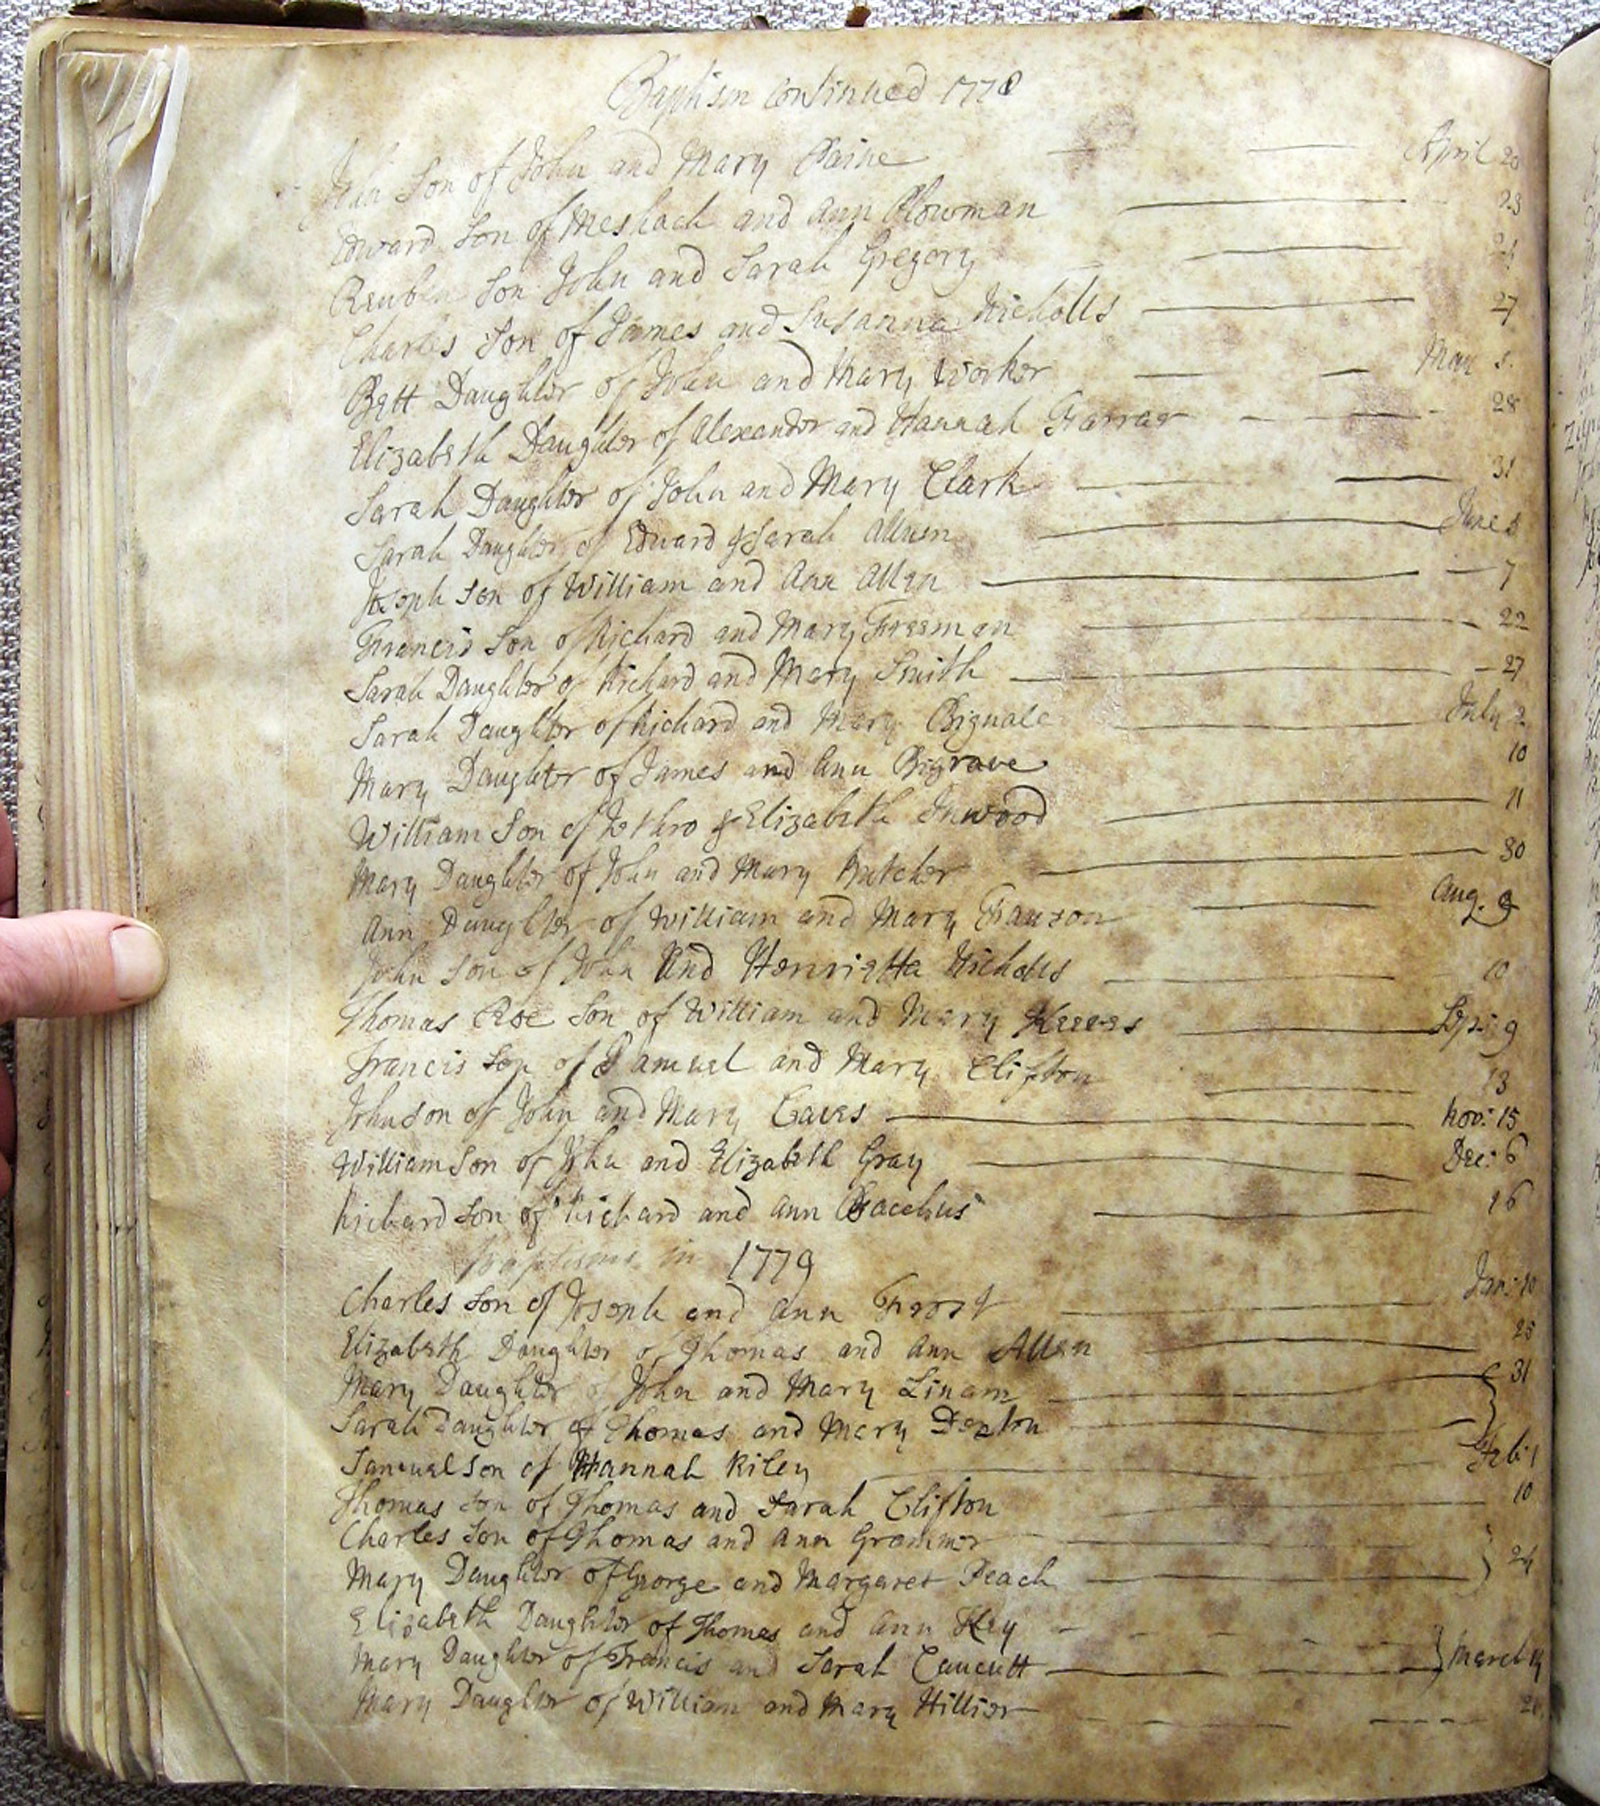 Baptism continued 1778
John Son of John and Mary Paine April 20
Edward Son of Meshach and Ann Plowman 23
Reuben Son John and Sarah Gregory
Charles Son of James and Susanna Nicholls 27
Bett Daughter of John and Mary Worker May
Elizabeth Daughter of Alexander and Hannah Farrar 28
Sarah Daughter of John and Mary Clark 31
Sarah Daughter of Edward & Sarah Allwen June
Joseph Son of William and Ann Allen 7
Francis Son of Richard and Mary Freeman 22
Sarah Daughter of Richard and Mary Smith 27
Sarah Daughter of Richard and Mary Bignale July 2
Mary Daughter of James and Ann Bigrave 10
William Son of Jethro & Elizabeth Inwood 11
Mary Daughter of John and Mary Butcher 30
Ann Daughter of William and Mary Aug. 9
John Son of John And Henrietta Nicholls 10
Thomas Roe Son of William and Mary Sep: 9
Francis Son of Samuel and Mary Clifton 13
John Son of John and Mary Eaves Nov: 15
William Son of John and Elizabeth Gray Dec: 6
Richard Son of Richard and Ann Bacchus 16
Baptisms in 1779
Charles Son of Joseph and Ann Frost Jan: 10
Elizabeth Daughter of Thomas and Ann Allen 25
Mary Daughter of John and Mary Linam 31
Sarah Daughter of Thomas and Mary Denton
Samuel Son of Hannah Riley Feb: 1
Thomas Son of Thomas and Sarah Clifton 10
Charles Son of Thomas and Ann Grammer
Mary Daughter of George and Margaret Peach 24
Elizabeth Daughter of Thomas and Ann Key
Mary Daughter of Francis and Sarah Caucutt March 14
Mary Daughter of William and Mary Hillier